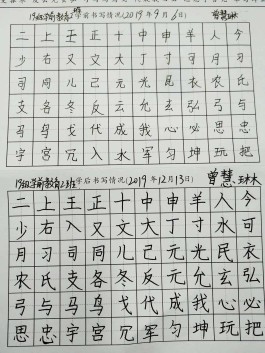 19级学前教育2班学前书写情况(2019年9月6日) 曾慧琳
二上王正十中申羊人今
少右又文大丁寸可月刁
司同儿己元光昆衣农氏
支各务冬反允去弘弓与
马鸟戈代成我心必思忠
宇宫冗入水军匀坤玩把
19级学前教育2班学后书写情况(2019年12月13日) 曾慧琳
二上王正十中申羊人今
少右入又文大丁寸水可
月刁司同儿己元光民衣
农氏支各务冬反元允玄弘
弓与马鸟戈代成我心必
思忠宇宫冗军匀坤玩把